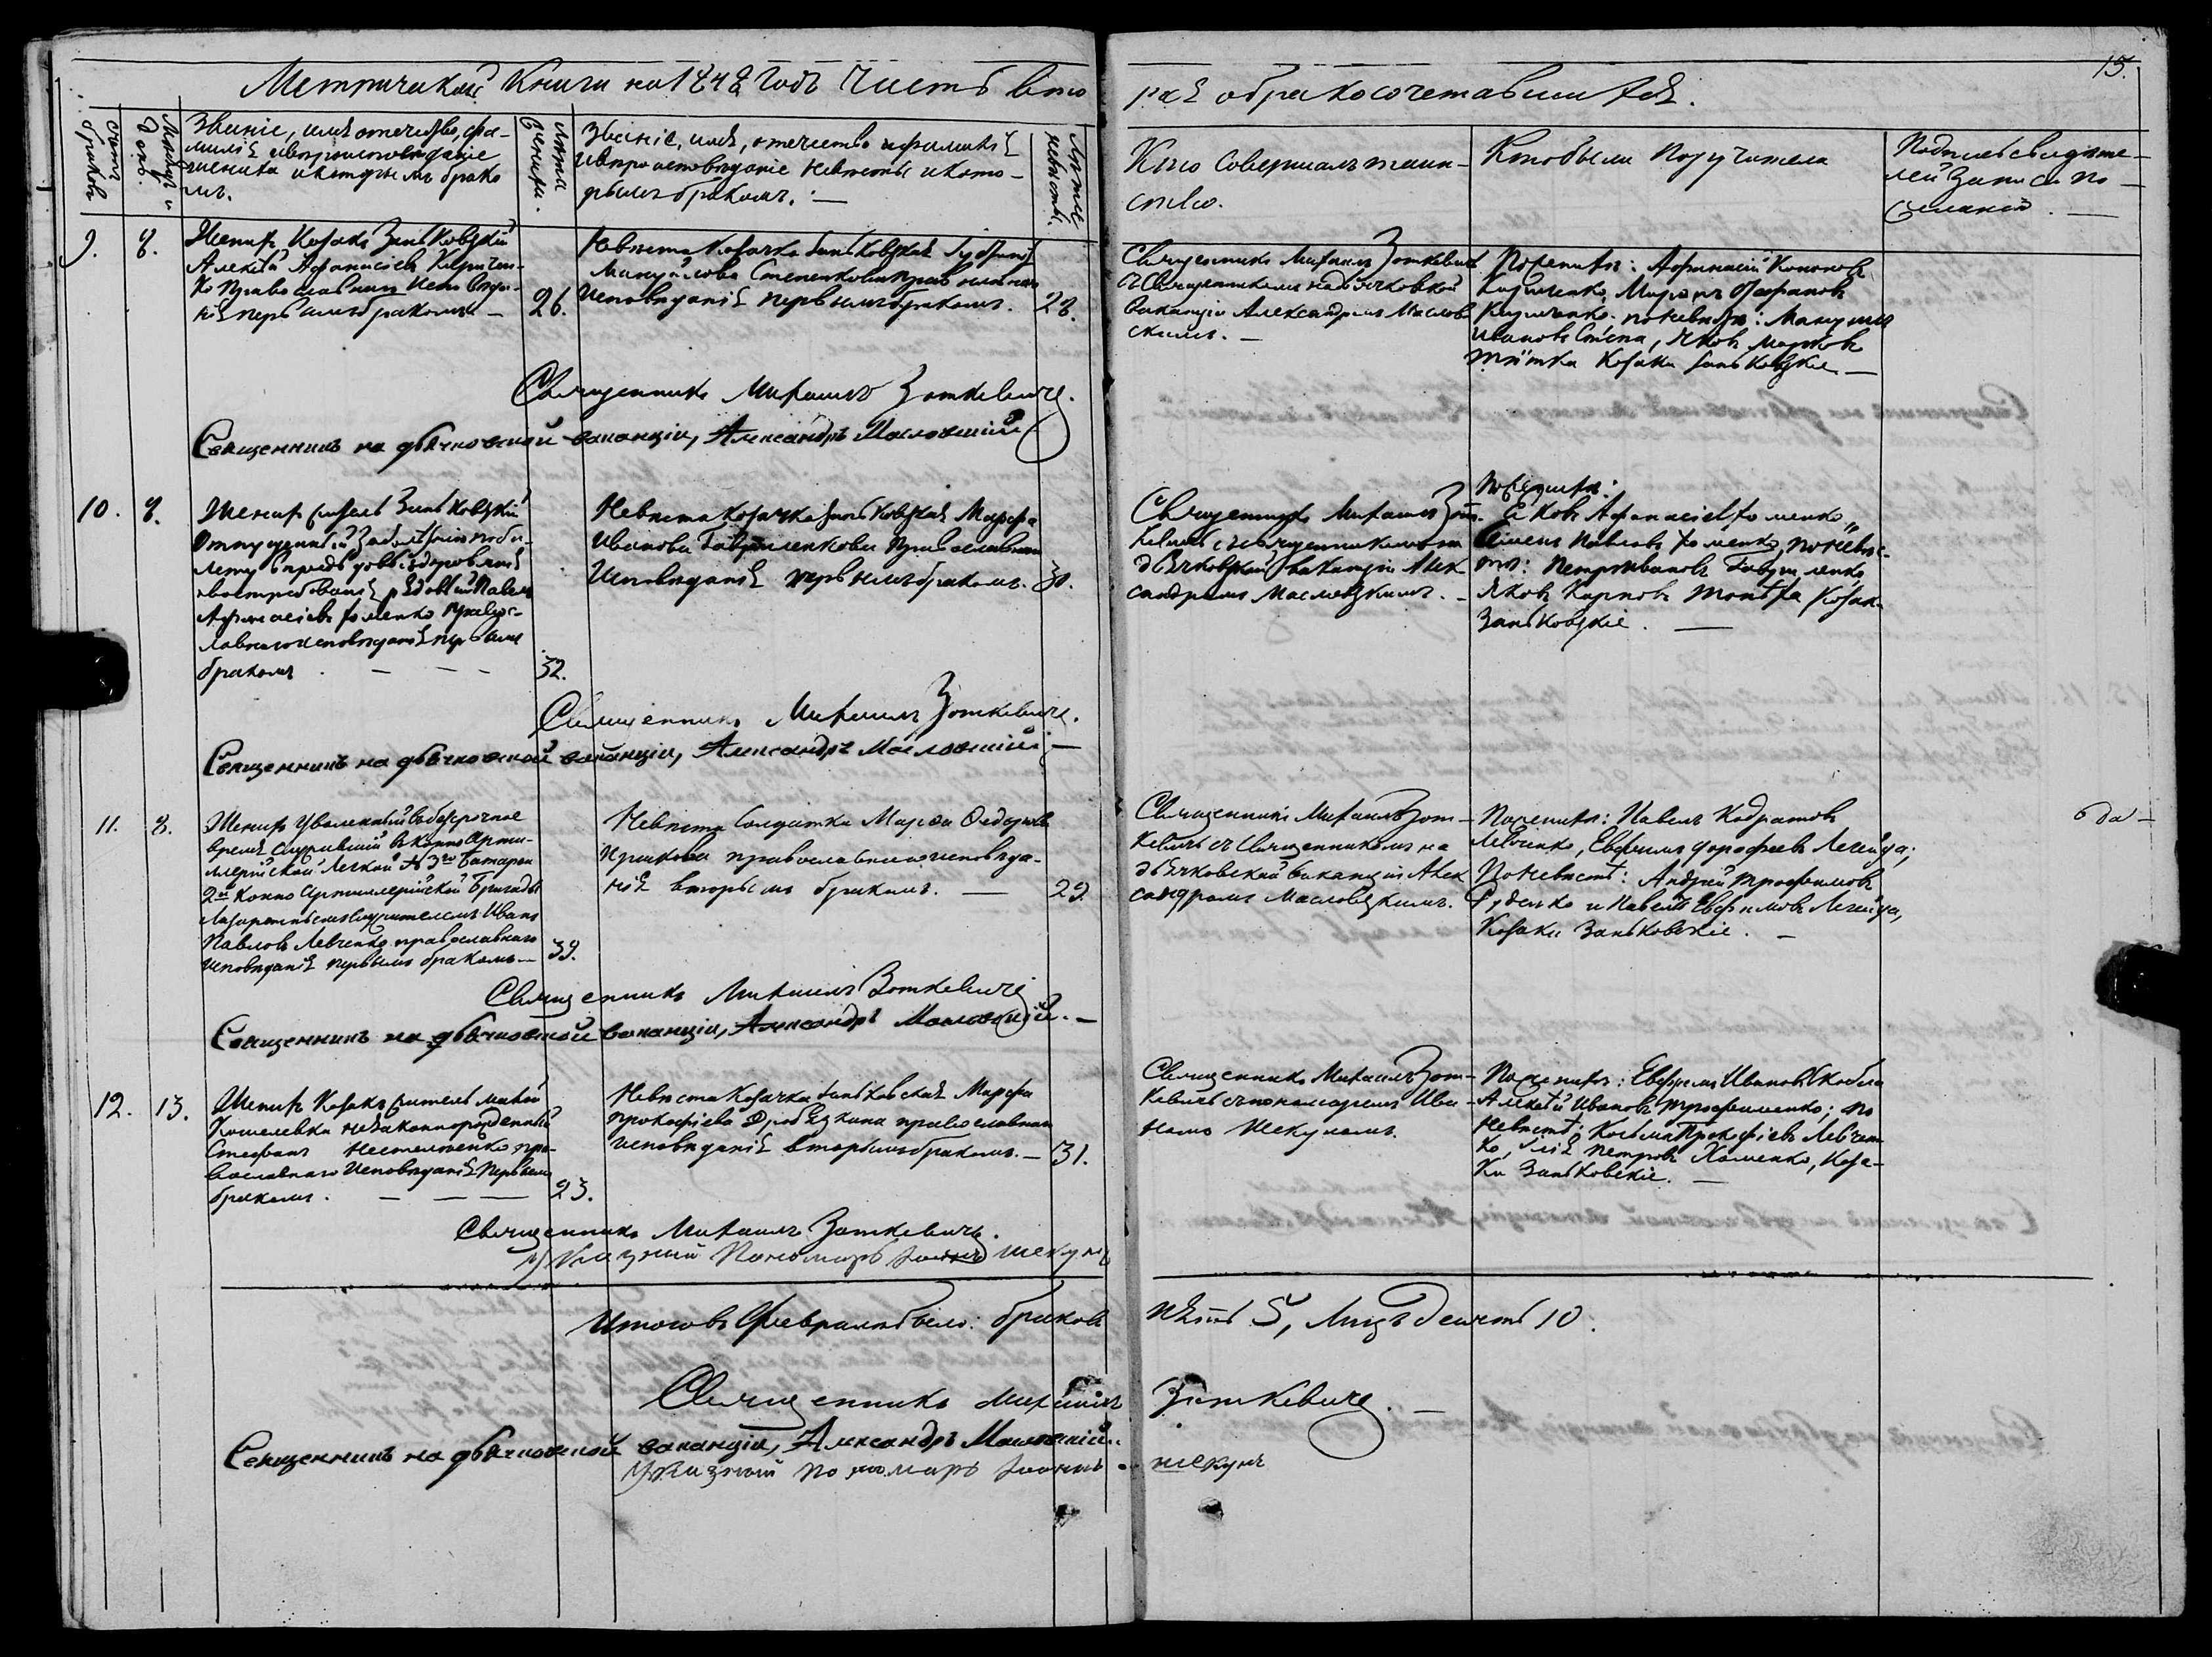 Метрической Книги на 1848 Годъ Часть вто
раѧ о бракосочетавшихсѧ.
15.
Счетъ браковъ
Месяцъ и день.
Званіе, имѧ отечество, фа-
миліѧ и вѣроисповѣданіе
жениха и которымъ брако
мъ.
Лѣта жениха.
Званіе, имѧ, отечество и фамиліѧ
и вѣроисповѣданіе невѣсты и кото-
рымъ бракомъ. —
Лѣта невѣсты.
Кто совершалъ таин-
ство.
Кто были поручители
Подпись свидѣте-
лей записи по
желанію. —
9.
8.
Женихъ Козакъ Заньковскій
Алексѣй Афанасіевъ Кириченко
Ко православнаго исповѣда-
ніѧ первымъ бракомъ —
26.
Невѣста Козачка Заньковскаѧ
Мануйлова Степенкова православнаго
исповѣданіѧ первымъ бракомъ.
28.
Священникъ Михаилъ Зоткевичъ
съ Священникомъ на дьячковской
ваканціи Александромъ Маслов
скимъ. —
По женихѣ: Афанасій Кононовъ
Кириченко, Миронъ
Кириченко. по невѣстѣ: Мануилъ
Ивановъ Степа, Яковъ Марковъ
Козаки Заньковскіе —
Священникъ Михаилъ Зоткевичъ.
Священникъ на дьячковской ваканціи, Александръ Масловскій
10.
8.
Женихъ житель Заньковскій
Отпущенный за болѣзнію по би-
лету впредь до выздоровленіѧ
и востребованіѧ рѧдовый Павелъ
Афанасіевъ Хоменко Правос-
лавнаго исповѣданіѧ первымъ
бракомъ. — — —
32.
Невѣста Козачка Заньковскаѧ Марфа
Иванова Гавриленкова Православнаго
Исповѣданіѧ первымъ бракомъ.
30.
Священникъ Михаилъ Зот-
кевичъ съ Священникомъ на
дьячковской ваканціи Алек-
сандромъ Масловскимъ. —
По женихѣ:
Яковъ Афанасіевъ Хоменко,
Семенъ Павловъ Хоменко, по невѣс-
тѣ: Петръ Ивановъ Гавриленко
Яковъ Карповъ Козаки
Заньковскіе. —
Священникъ Михаилъ Зоткевичъ.
Священникъ на дьячковской ваканціи, Александръ Масловскій —
11.
8.
Женихъ Уволенный въ безсрочное
времѧ служившій въ конно Арти-
ллерійской Легкой № 3го Батареи
2й Конно Артиллерійской Бригады
Лазаретнымъ служителемъ Иванъ
Павловъ Левченко православнаго
исповѣданіѧ первымъ бракомъ —
39.
Невѣста Солдатка Марѳа Ѳедорова
православнаго исповѣда-
ніѧ вторымъ бракомъ. —
29
Священникъ Михаилъ Зот-
кевичъ съ Священникомъ на
дьячковской ваканціи Алек
сандромъ Масловскимъ.
По женихѣ: Павелъ Кодратовъ
Левченко, Евфимъ Дорофеевъ Легейда;
По невѣстѣ: Андрей Трофимовъ
Руденко и Павелъ Евфимовъ Легейда,
Козаки Заньковскіе. —
Священникъ Михаилъ Зоткевичъ
Священникъ на дьячковской ваканціи, Александръ Масловскій. —
12.
13.
Женихъ Козакъ житель малой
Кошелевки незаконнорожденный
Стефанъ пра-
вославнаго Исповѣданіѧ первымъ
бракомъ. — — —
23.
Невѣста Козачка Заньковскаѧ Марфа
Прокофіева православнаго
исповѣданіѧ вторымъ бракомъ. —
31.
Священникъ Михаилъ Зот-
кевичъ съ пономаремъ Ива-
номъ Шекуномъ.
По женихѣ: Евфимъ Ивановъ Скобла
Алексѣй Ивановъ Трофименко; по
невѣстѣ: Козьма Прокофіевъ Левчен
ко, Иліѧ Петровъ Хоменко, Коза-
ки Заньковскіе. —
Священникъ Михаилъ Зоткевичъ.
Указный Пономарь Іоаннъ Шекунъ
Итого въ Февралѣ было: браковъ
пѧть 5, Лицъ десять 10.
Священникъ Михаилъ
Зоткевичъ. —
Священникъ на дьячковской ваканціи, Александръ Масловскій.
Указный пономарь Іоаннъ
Шекунъ